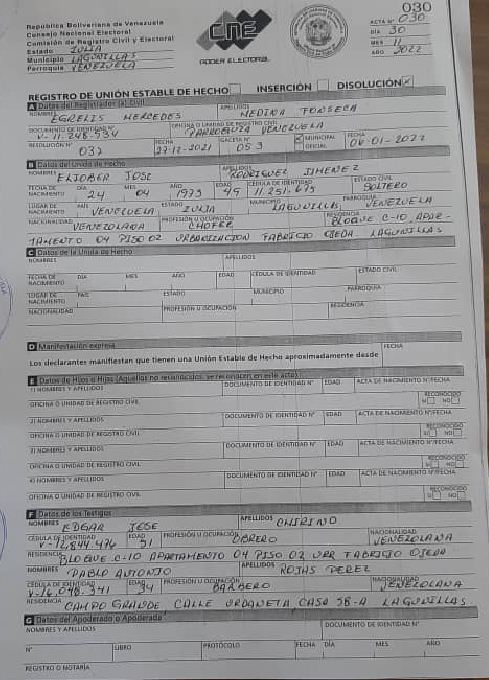 030
República Bolivariana de Venezuela
Consejo Nacional Electoral
Comisión de Registro Civil y Electoral
Estado ZULIA
Municipio LAGUNILLAS
Parroquia VENEZUELA
CNE
PODER ELECTORAL
ACTA N° 030
DÍA 30
MES 11
AÑO 2022
REGISTRO DE UNIÓN ESTABLE DE HECHO INSERCIÓN DISOLUCIÓN
A Datos del Registrador(a) Civil
NOMBRES EGLELIS MERCEDES APELLIDOS MEDINA FONSECA
DOCUMENTO DE IDENTIDAD N° V-11.248.734 OFICINA O UNIDAD DE REGISTRO CIVIL PARROQUIA VENEZUELA
RESOLUCIÓN N° 037 FECHA 27-12-2021 GACETA N° 053 MUNICIPAL OFICIAL FECHA 04-01-2022
B Datos del Unido de Hecho
NOMBRES ELIOBER JOSE APELLIDOS RODRIGUEZ JIMENEZ
FECHA DE NACIMIENTO DÍA 24 MES 04 AÑO 1973 EDAD 49 CÉDULA DE IDENTIDAD 11.251.675 ESTADO CIVIL SOLTERO
LUGAR DE NACIMIENTO PAÍS VENEZUELA ESTADO ZULIA MUNICIPIO LAGUNILLAS PARROQUIA VENEZUELA
NACIONALIDAD VENEZOLANA PROFESIÓN U OCUPACIÓN CHOFER RESIDENCIA BLOQUE C-10, APAR-
TAMENTO 04 PISO 02 URBANIZACION FABRICIO OJEDA LAGUNILLAS
C Datos de la Unida de Hecho
NOMBRES APELLIDOS
FECHA DE NACIMIENTO DÍA MES AÑO EDAD CÉDULA DE IDENTIDAD ESTADO CIVIL
LUGAR DE NACIMIENTO PAÍS ESTADO MUNICIPIO PARROQUIA
NACIONALIDAD PROFESIÓN U OCUPACIÓN RESIDENCIA
D Manifestación expresa
Los declarantes manifiestan que tienen una Unión Estable de Hecho aproximadamente desde FECHA
E Datos de Hijos o Hijas (Aquellos no reconocidos, se reconocen en este acto)
1) NOMBRES Y APELLIDOS DOCUMENTO DE IDENTIDAD N° EDAD ACTA DE NACIMIENTO N°/FECHA
OFICINA O UNIDAD DE REGISTRO CIVIL RECONOCIDO SÍ NO
2) NOMBRES Y APELLIDOS DOCUMENTO DE IDENTIDAD N° EDAD ACTA DE NACIMIENTO N°/FECHA
OFICINA O UNIDAD DE REGISTRO CIVIL RECONOCIDO SÍ NO
3) NOMBRES Y APELLIDOS DOCUMENTO DE IDENTIDAD N° EDAD ACTA DE NACIMIENTO N°/FECHA
OFICINA O UNIDAD DE REGISTRO CIVIL RECONOCIDO SÍ NO
4) NOMBRES Y APELLIDOS DOCUMENTO DE IDENTIDAD N° EDAD ACTA DE NACIMIENTO N°/FECHA
OFICINA O UNIDAD DE REGISTRO CIVIL RECONOCIDO SÍ NO
F Datos de los Testigos
NOMBRES EDGAR JOSE APELLIDOS CHIRINO
CÉDULA DE IDENTIDAD V-12.844.476 EDAD 51 PROFESIÓN U OCUPACIÓN OBRERO NACIONALIDAD VENEZOLANA
RESIDENCIA BLOQUE C-10 APARTAMENTO 04 PISO 02 URB FABRICIO OJEDA
NOMBRES PABLO ANTONIO APELLIDOS ROJAS PEREZ
CÉDULA DE IDENTIDAD V-16.048.341 EDAD 39 PROFESIÓN U OCUPACIÓN BARBERO NACIONALIDAD VENEZOLANA
RESIDENCIA CAMPO GRANDE CALLE URDANETA CASA 58-A LAGUNILLAS
G Datos del Apoderado o Apoderada
NOMBRES Y APELLIDOS DOCUMENTO DE IDENTIDAD N°
N° LIBRO PROTOCOLO FECHA DÍA MES AÑO
REGISTRO O NOTARÍA